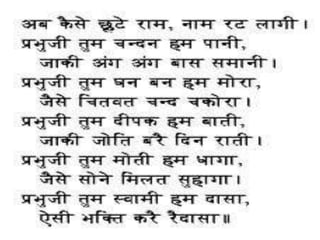 अब कैसे छूटे राम, नाम रट लागी।
प्रभुजी तुम चन्दन हम पानी,
जाकी अंग अंग बास समानी।
प्रभुजी तुम घन बन हम मोरा,
जैसे चितवत चन्द चकोरा।
प्रभुजी तुम दीपक हम बाती,
जाकी जोति बरै दिन राती।
प्रभुजी तुम मोती हम धागा,
जैसे सोने मिलत सुहागा।
प्रभुजी तुम स्वामी हम दासा,
ऐसी भक्ति करै रैदासा॥